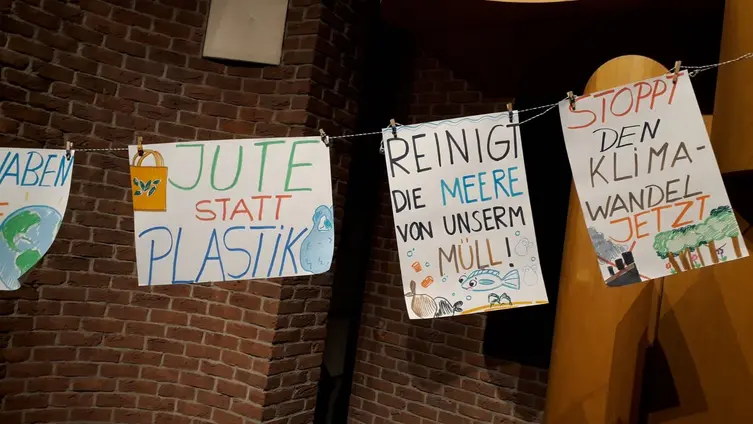 JUTE
STATT
PLASTIK
REINIGT
DIE MEERE
VON UNSERM
MÜLL!
STOPPT
DEN
KLIMA-
WANDEL
JETZT